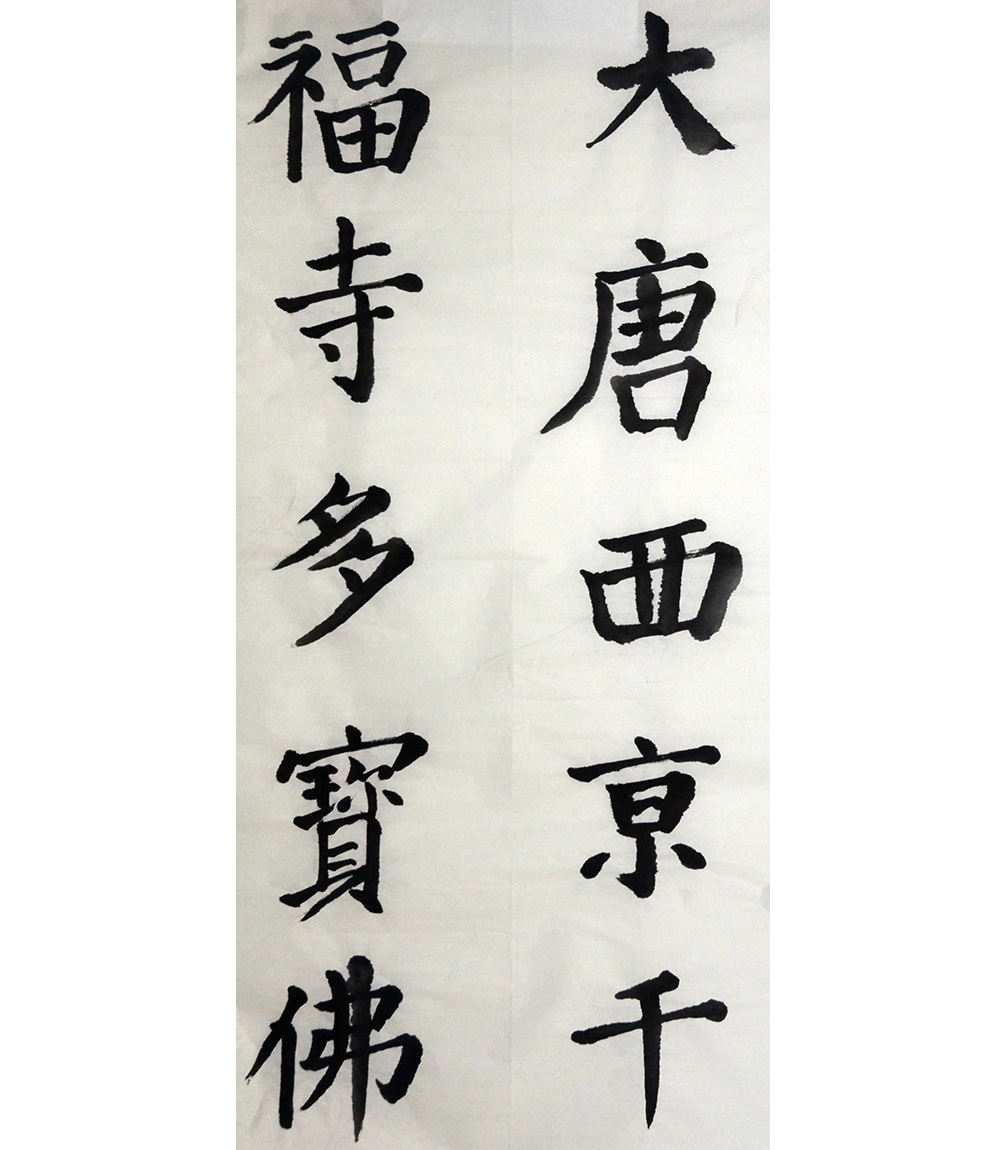 大唐西京千
福寺多寶佛